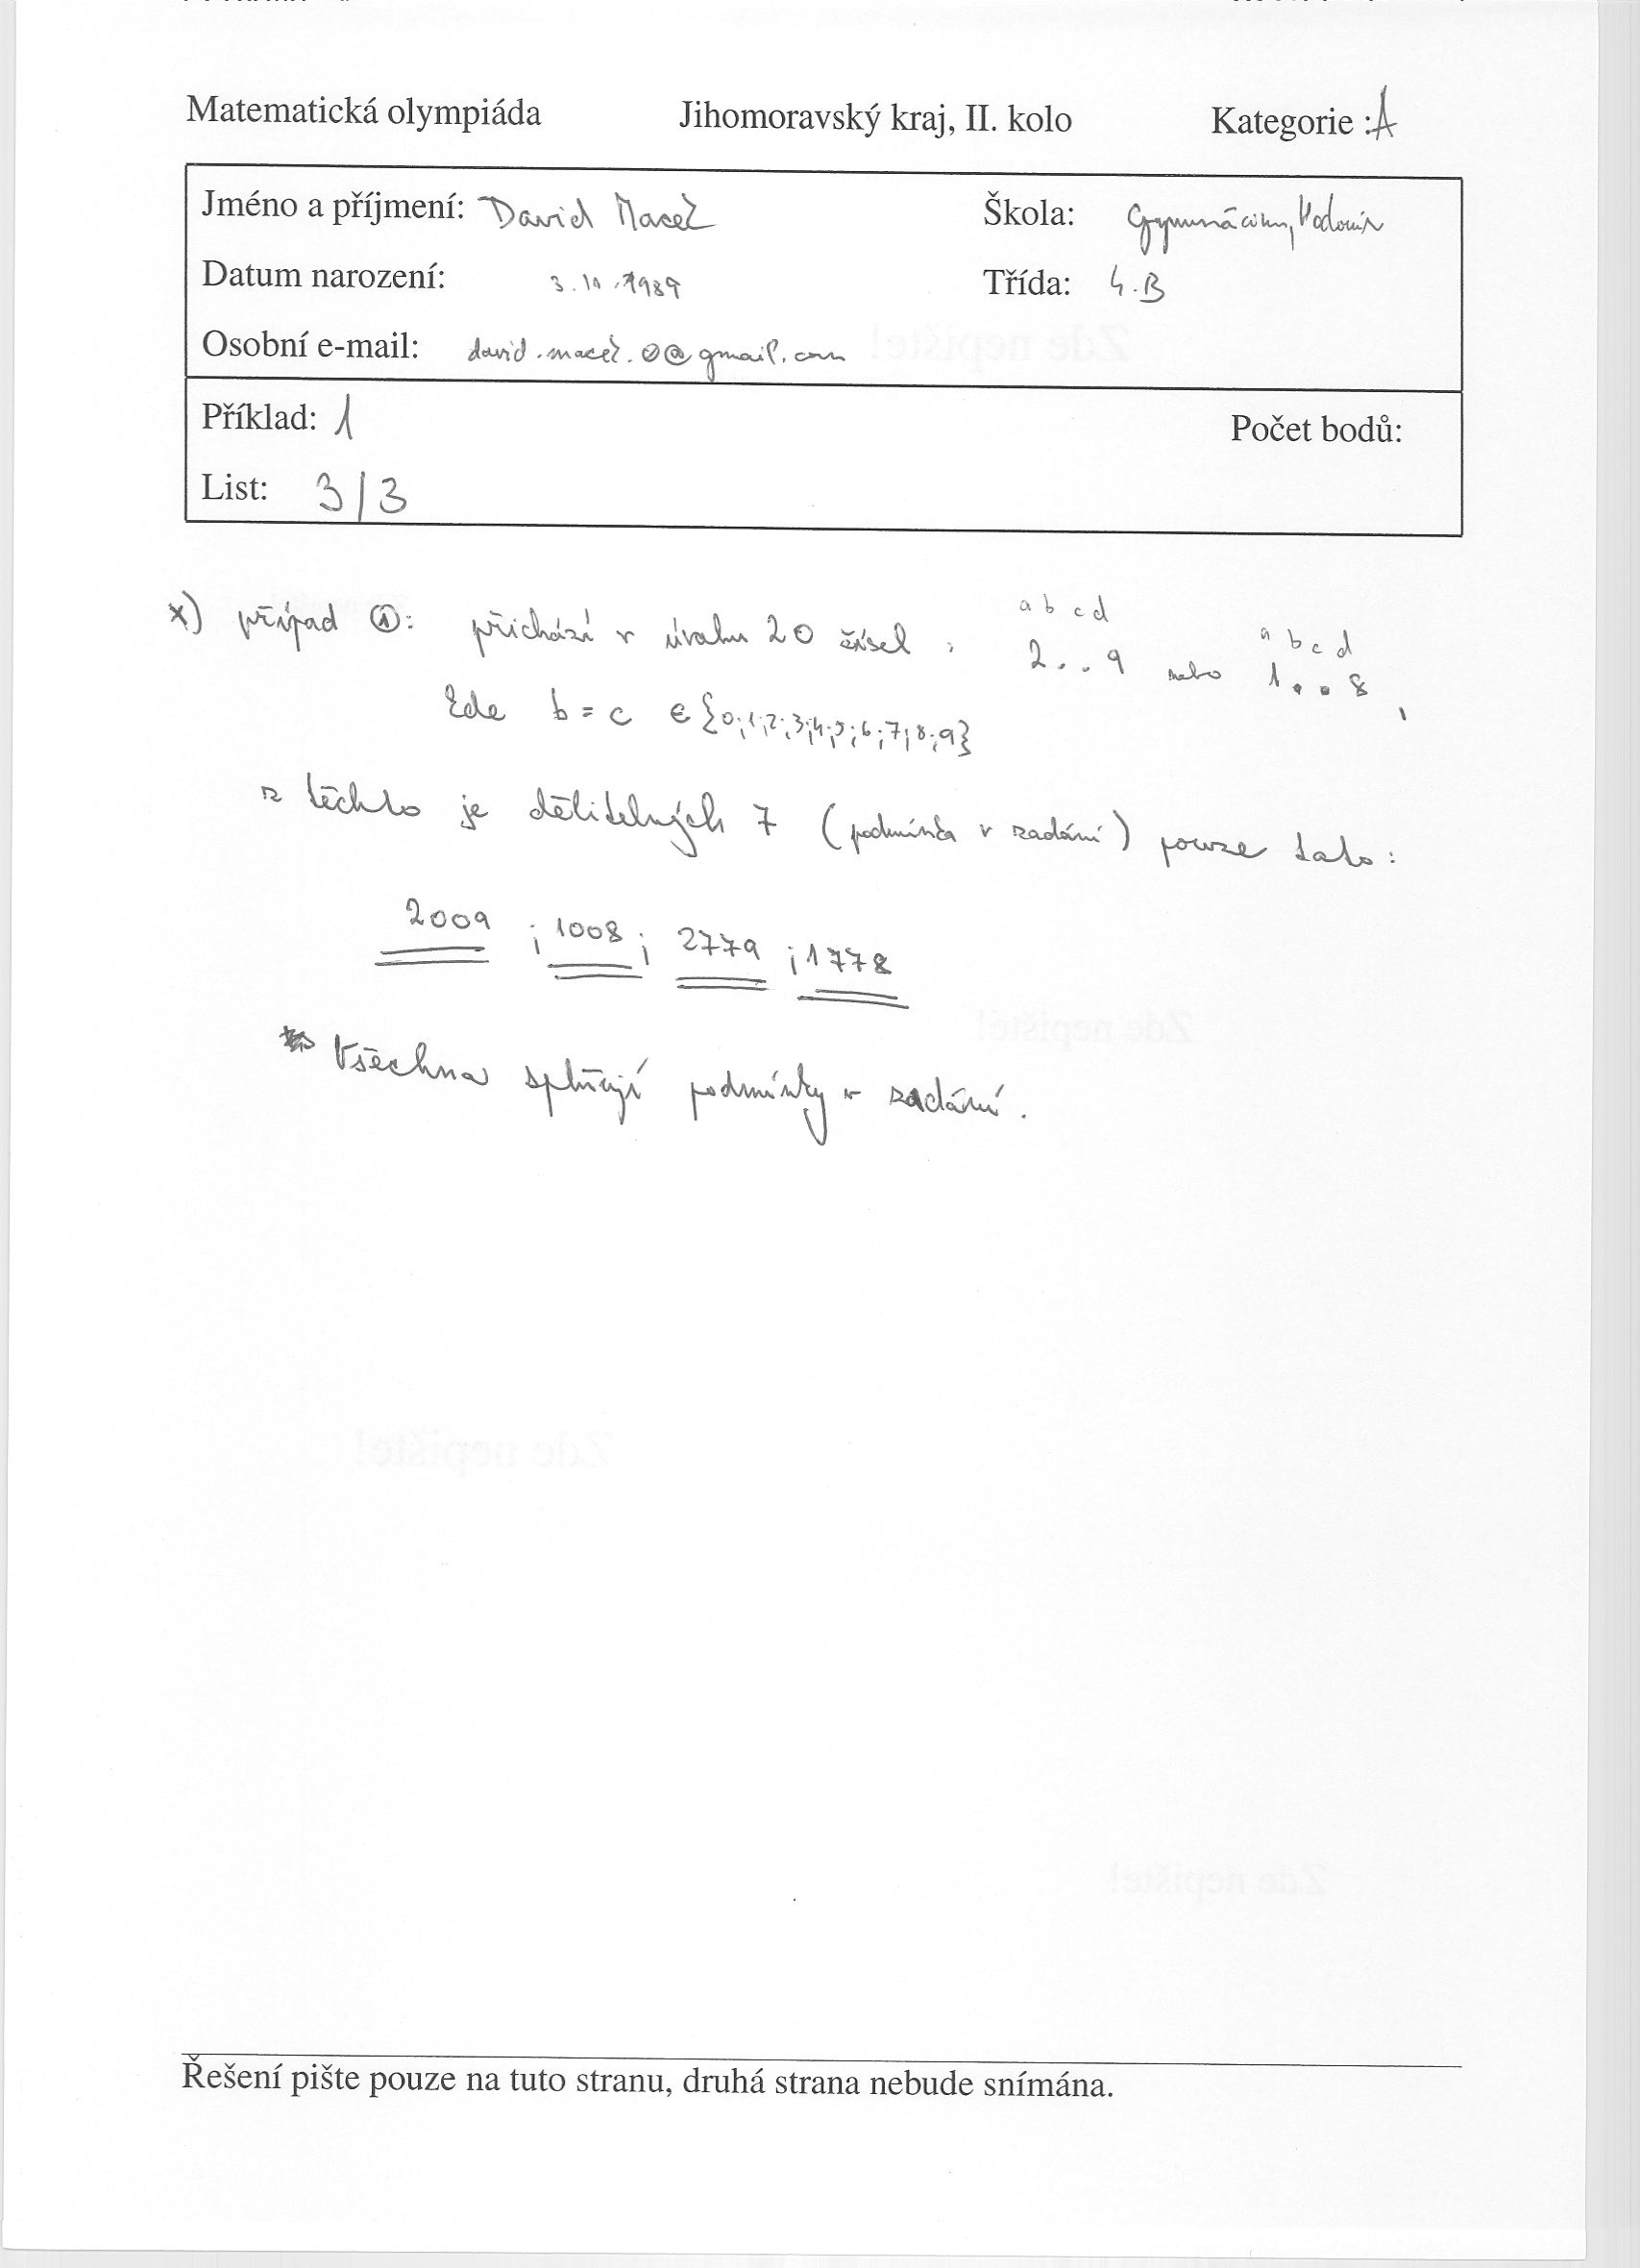 Matematická olympiáda Jihomoravský kraj, II. kolo Kategorie : A
Jméno a příjmení: David Škola: Gymnázium,
Datum narození: 3.10.1989 Třída: 4.B
Osobní e-mail:
Příklad: 1 Počet bodů:
List: 3/3
a b c d a b c d
*) případ ①: přichází v úvahu 20 čísel : 2..9 nebo 1..8 ,
kde b = c ∈ {0;1;2;3;4;5;6;7;8;9}
z těchto je dělitelných 7 (podmínka v zadání) pouze tato:
2009 ; 1008 ; 2779 ; 1778
Všechna splňují podmínky v zadání.
Zde nepište!
Zde nepište!
Zde nepište!
Zde nepište!
Řešení pište pouze na tuto stranu, druhá strana nebude snímána.